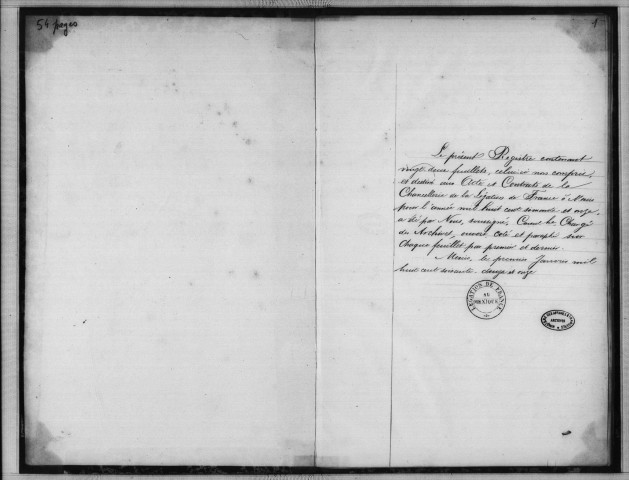 54 pages
1
Le présent Registre contenant
vingt deux feuillets, celui-ci non compris,
et destiné aux Actes et Contrats de la
Chancellerie de la Légation de France à
pour l'année mil huit cent soixante et onze,
a été par Nous, soussigné, Chargé
des Archives, ouvert, coté et paraphé sur
chaque feuillet par premier et dernier.
le premier Janvier mil
huit cent soixante et onze
LÉGATION DE FRANCE
AU
ARCHIVES